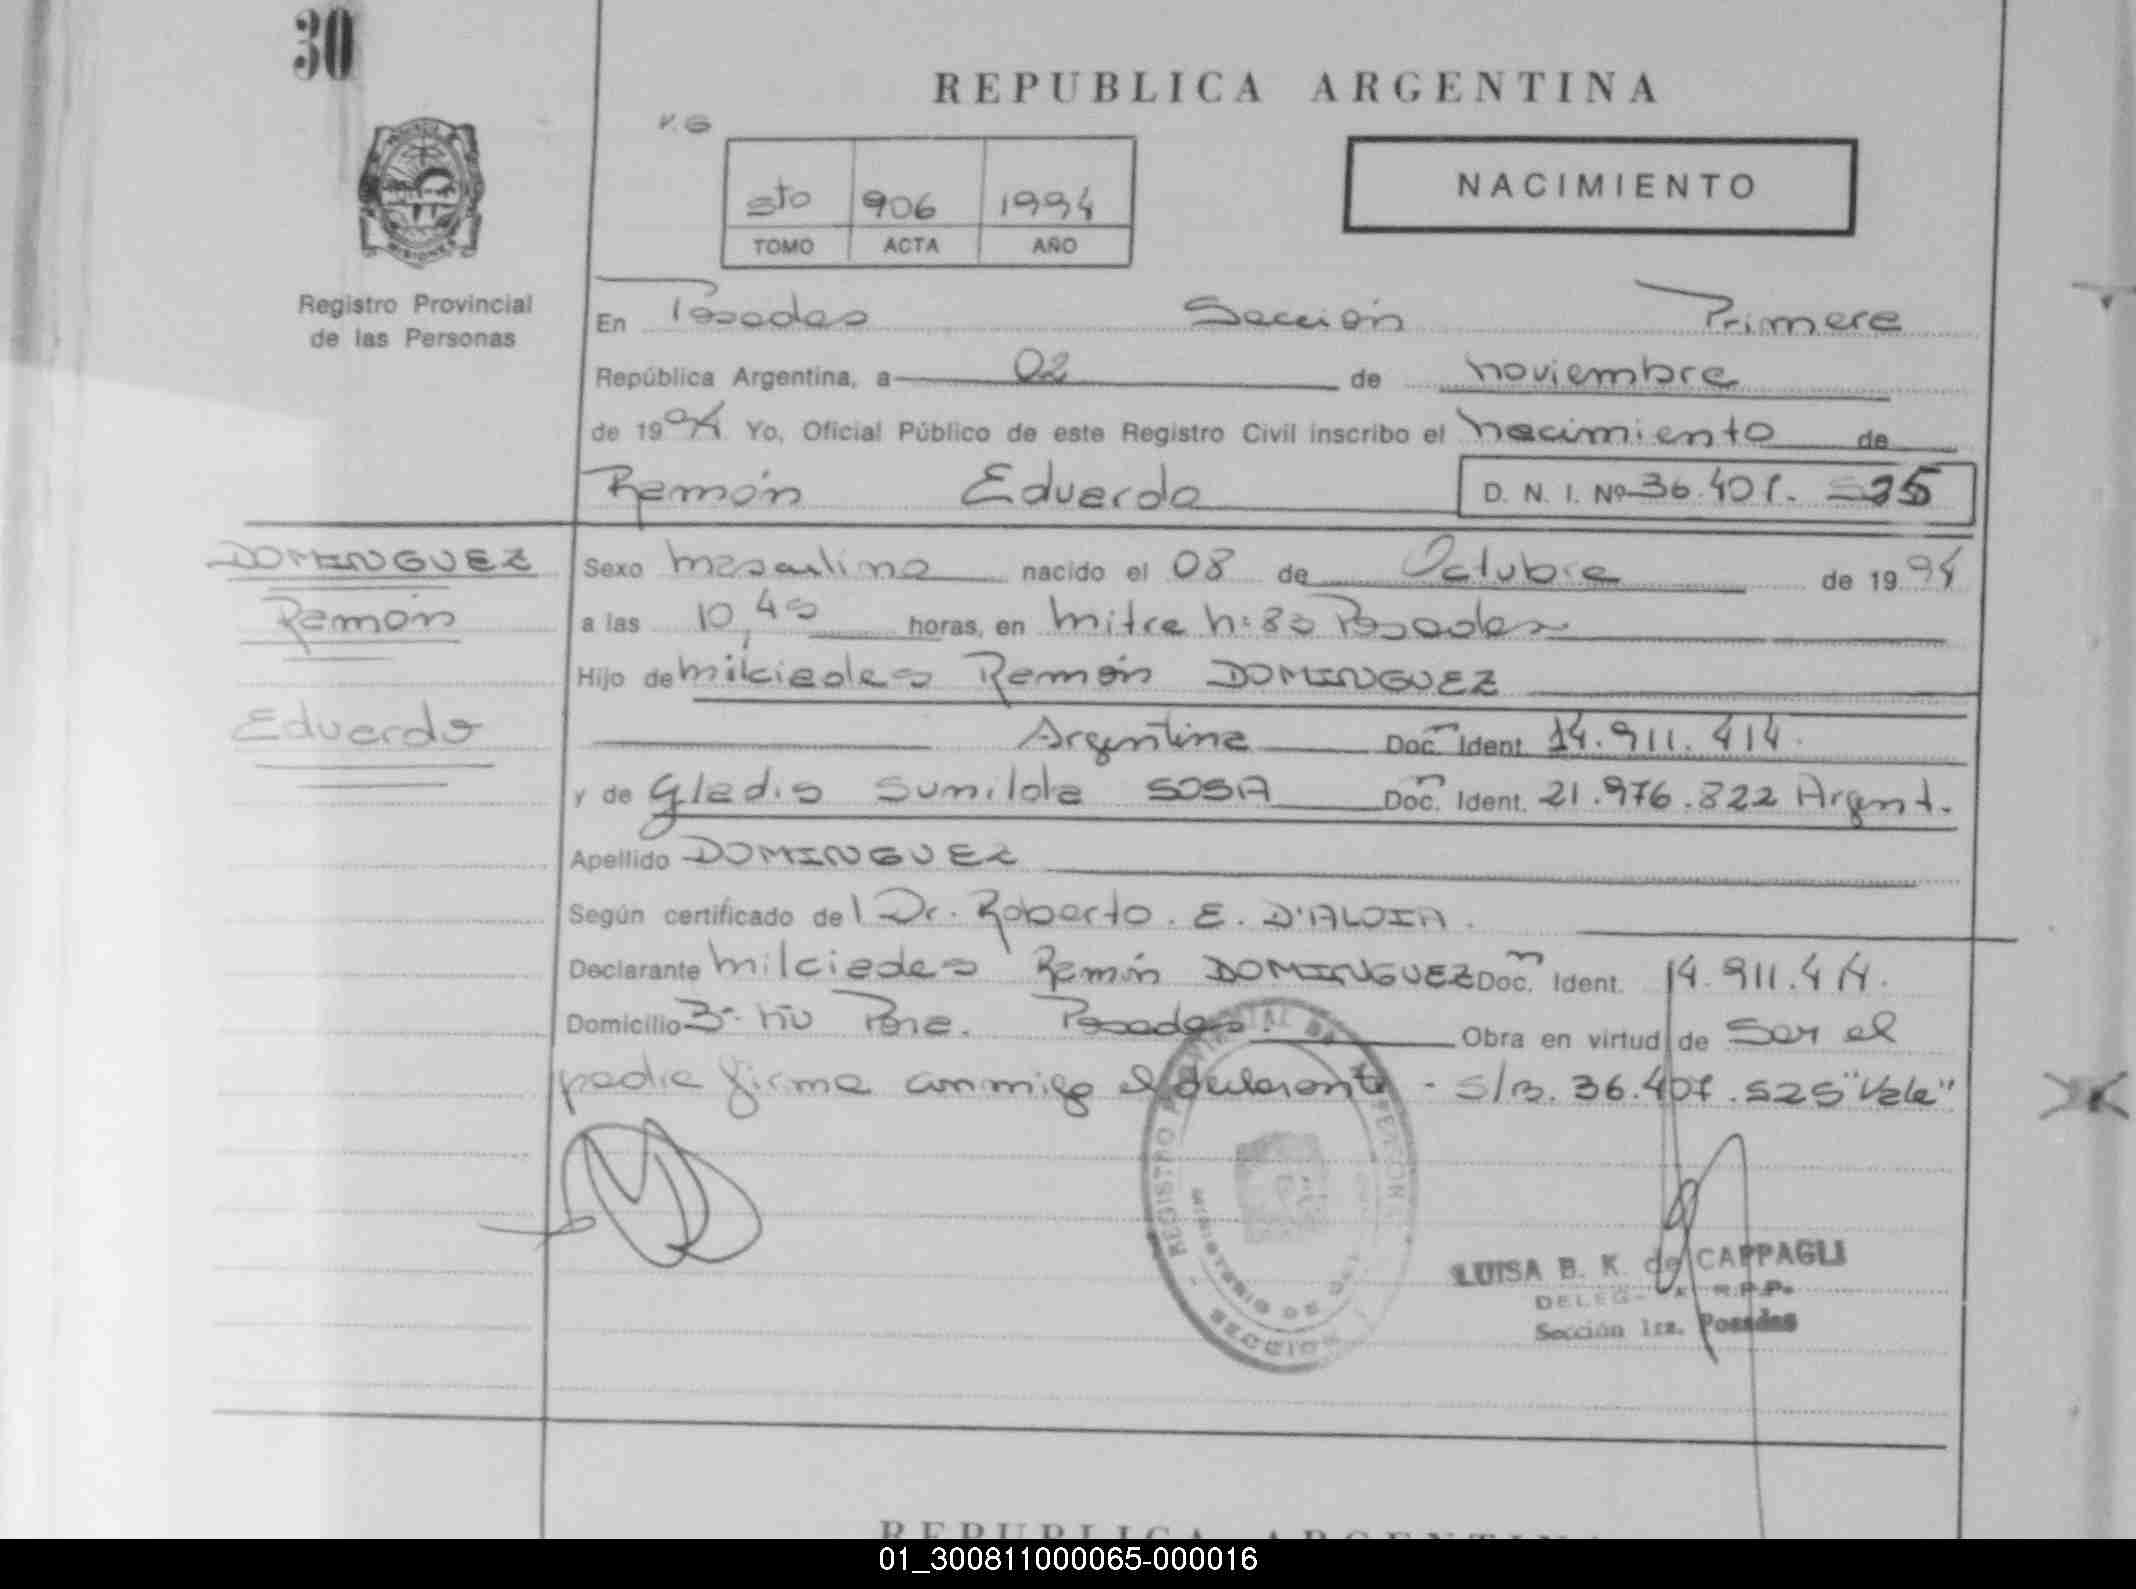 30
REPUBLICA ARGENTINA
5to 906 1994
TOMO ACTA AÑO
NACIMIENTO
Registro Provincial
de las Personas
En Posadas Sección Primera
República Argentina, a 02 de noviembre
de 1994 Yo, Oficial Público de este Registro Civil inscribo el nacimiento de
Ramón Eduardo D. N. I. Nº 36.407. 525
DOMINGUEZ
Ramón
Eduardo
Sexo masculino nacido el 08 de Octubre de 1994
a las 10,45 horas, en mitre n: 80 Posadas
Hijo de milciades Ramón DOMINGUEZ
Argentina Doc. Ident. 14.911.414.
y de Gladis Sunilda SOSA Doc. Ident. 21.976.822 Argent.
Apellido DOMINGUEZ
Según certificado del Dr. Roberto. E. D'ALOIA.
Declarante milciades Ramón DOMINGUEZ Doc. Ident. 14.911.414.
Domicilio Posadas. Obra en virtud de ser el
padre firma conmigo el declarante - S/B. 36.407.525 "Vale"
LUISA B. K. de CAPPAGLI
R.P.P.
Sección 1ra. Posadas
REPUBLICA ARGENTINA
01_300811000065-000016